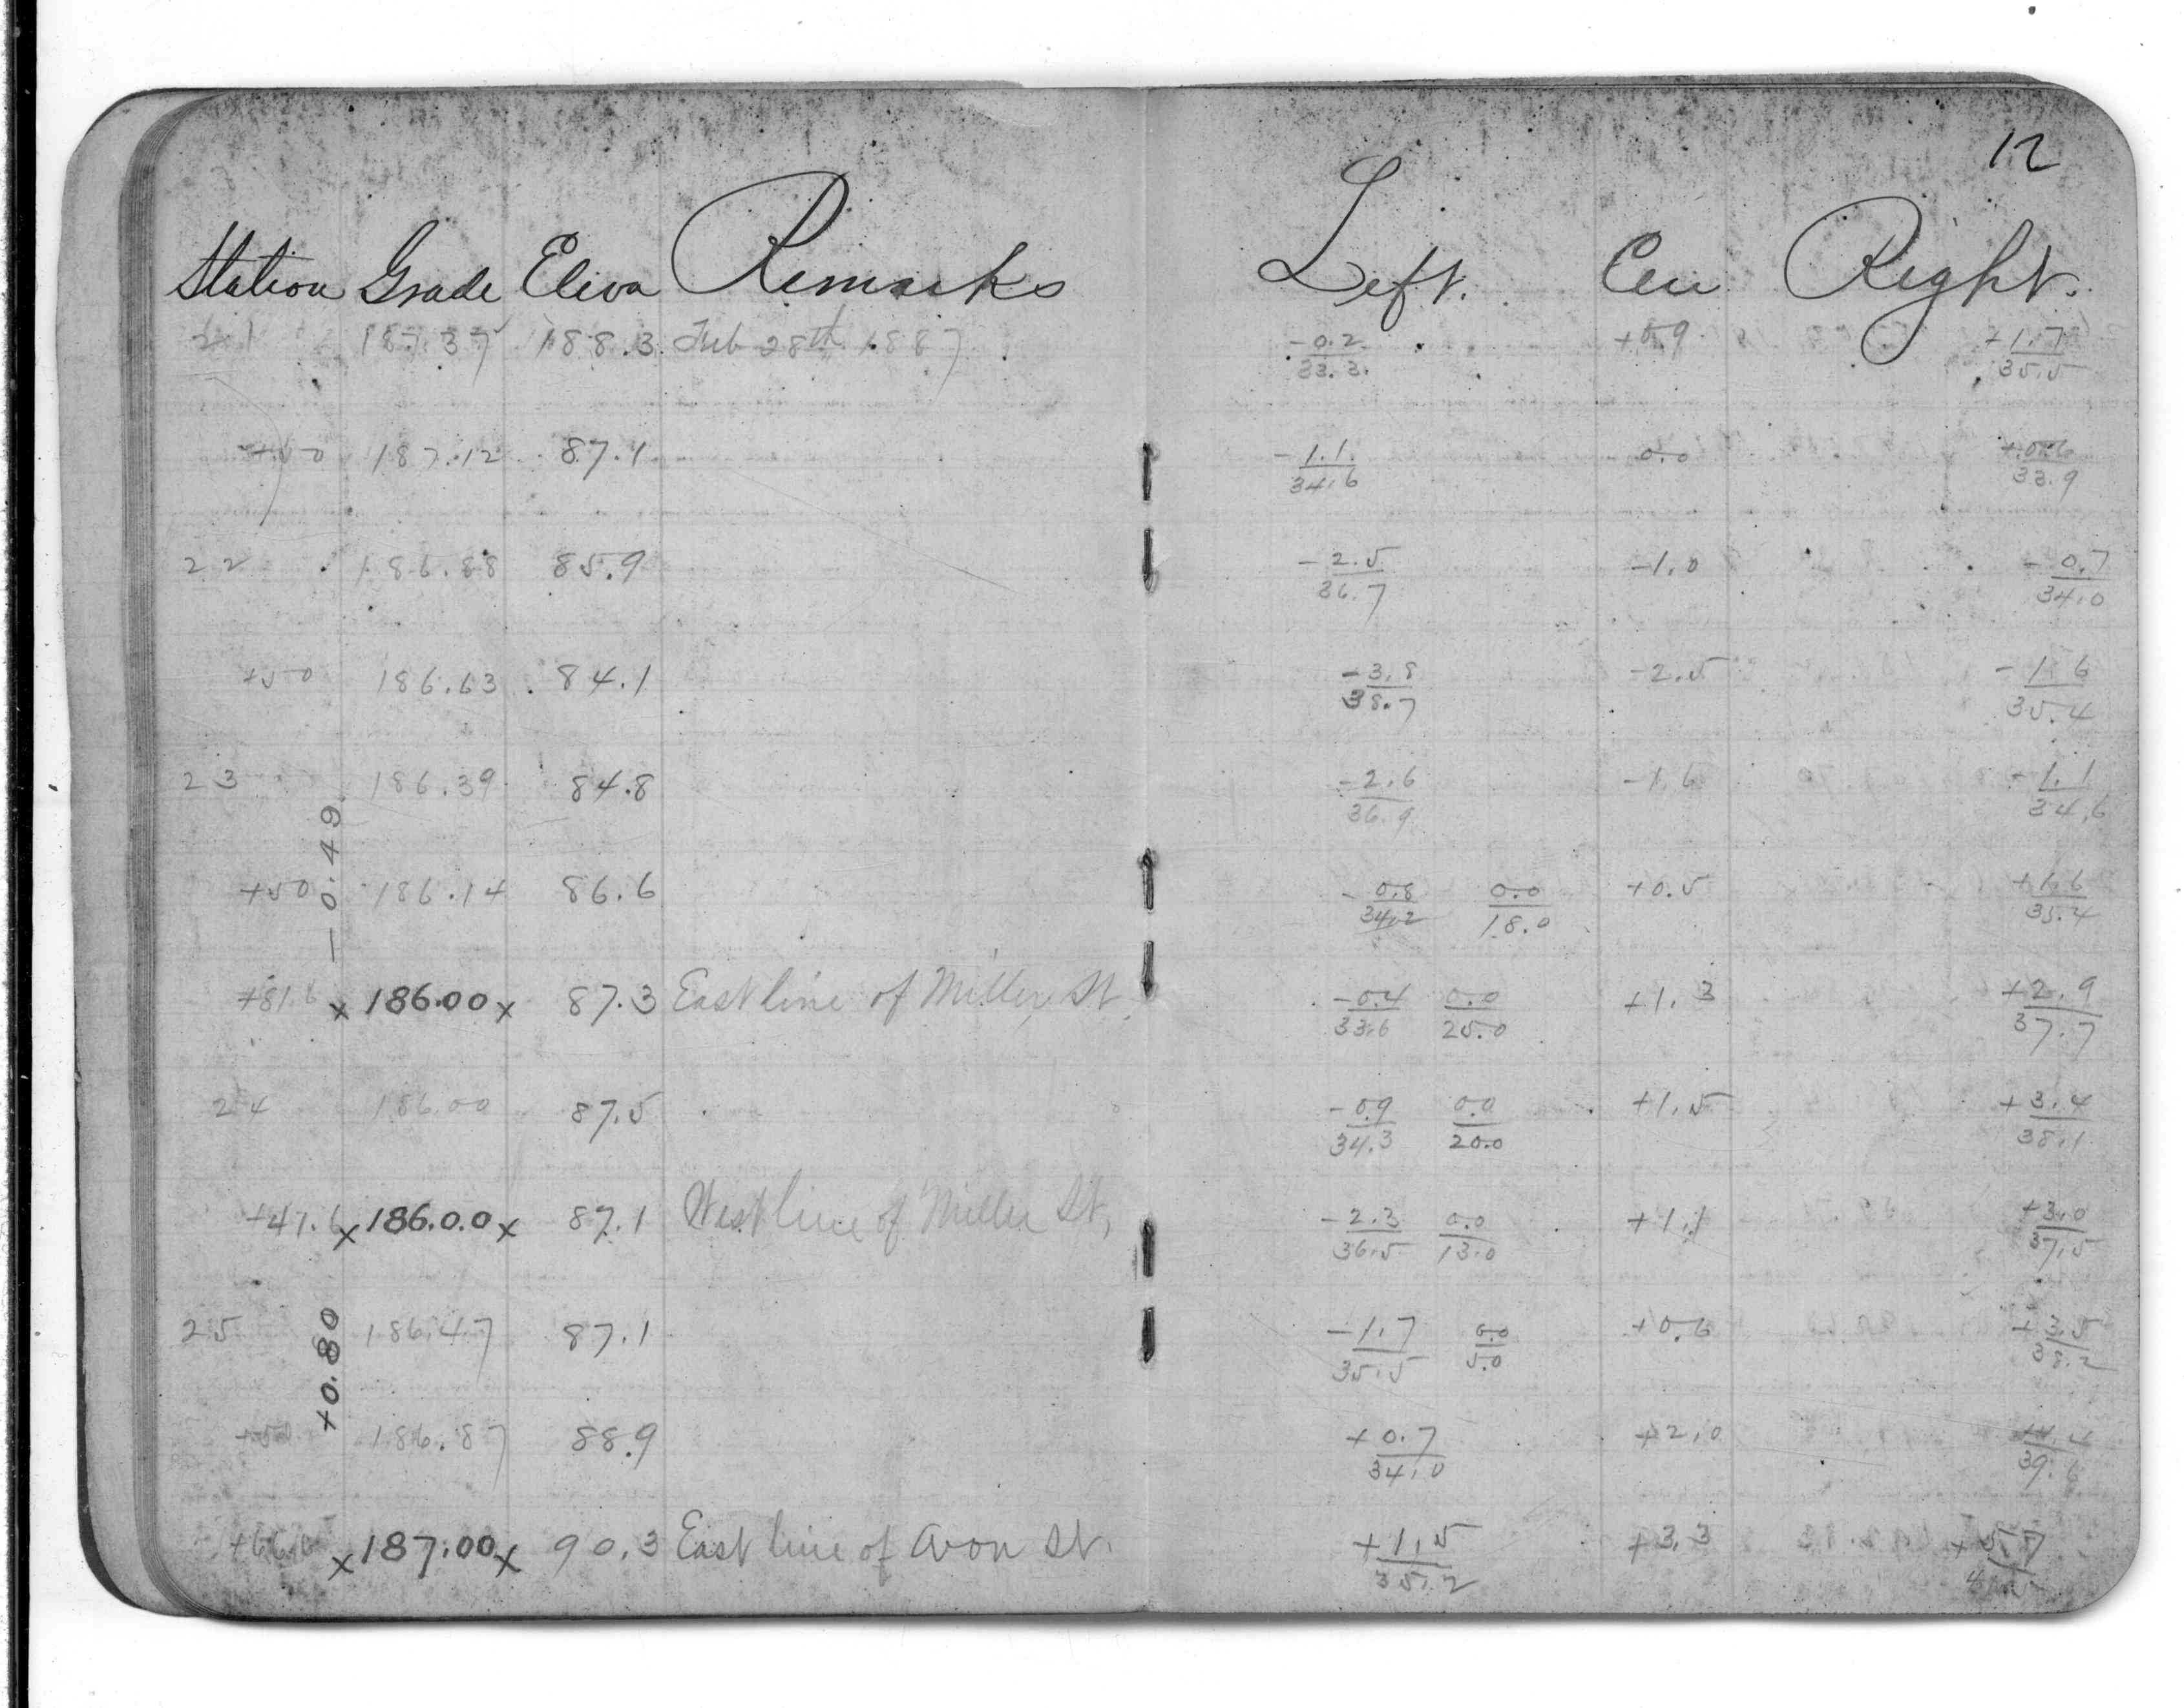 12
Station Grade Eleva Remarks Left. Cen Right.
21 187.37 188.3 Feb 28th 1887 -0.2/33.3 +0.9 +1.7/35.5
+50 187.12 87.1 -1.1/34.6 0.0 +0.6/33.9
22 186.88 85.9 -2.5/36.7 -1.0 -0.7/34.0
+50 186.63 84.1 -3.8/38.7 -2.5 -1.6/35.4
23 186.39 84.8 -2.6/36.9 -1.6 -1.1/34.6
-0.49
+50 186.14 86.6 -0.8/34.2 0.0/18.0 +0.5 +1.6/35.4
+81.6 x 186.00 x 87.3 East line of Miller St. -0.4/33.6 0.0/25.0 +1.3 +2.9/37.7
24 186.00 87.5 -0.9/34.3 0.0/20.0 +1.5 +3.4/38.1
+41.6 x 186.00 x 87.1 West line of Miller St, -2.3/36.5 0.0/13.0 +1.1 +3.0/37.5
25 186.47 87.1 -1.7/35.5 0.0/5.0 +0.6 +3.5/38.2
+0.80
+50 186.87 88.9 +0.7/34.0 +2.0 +4.4/39.6
x 187.00 x 90.3 East line of Avon St. +1.5/35.2 +3.3 +5.7